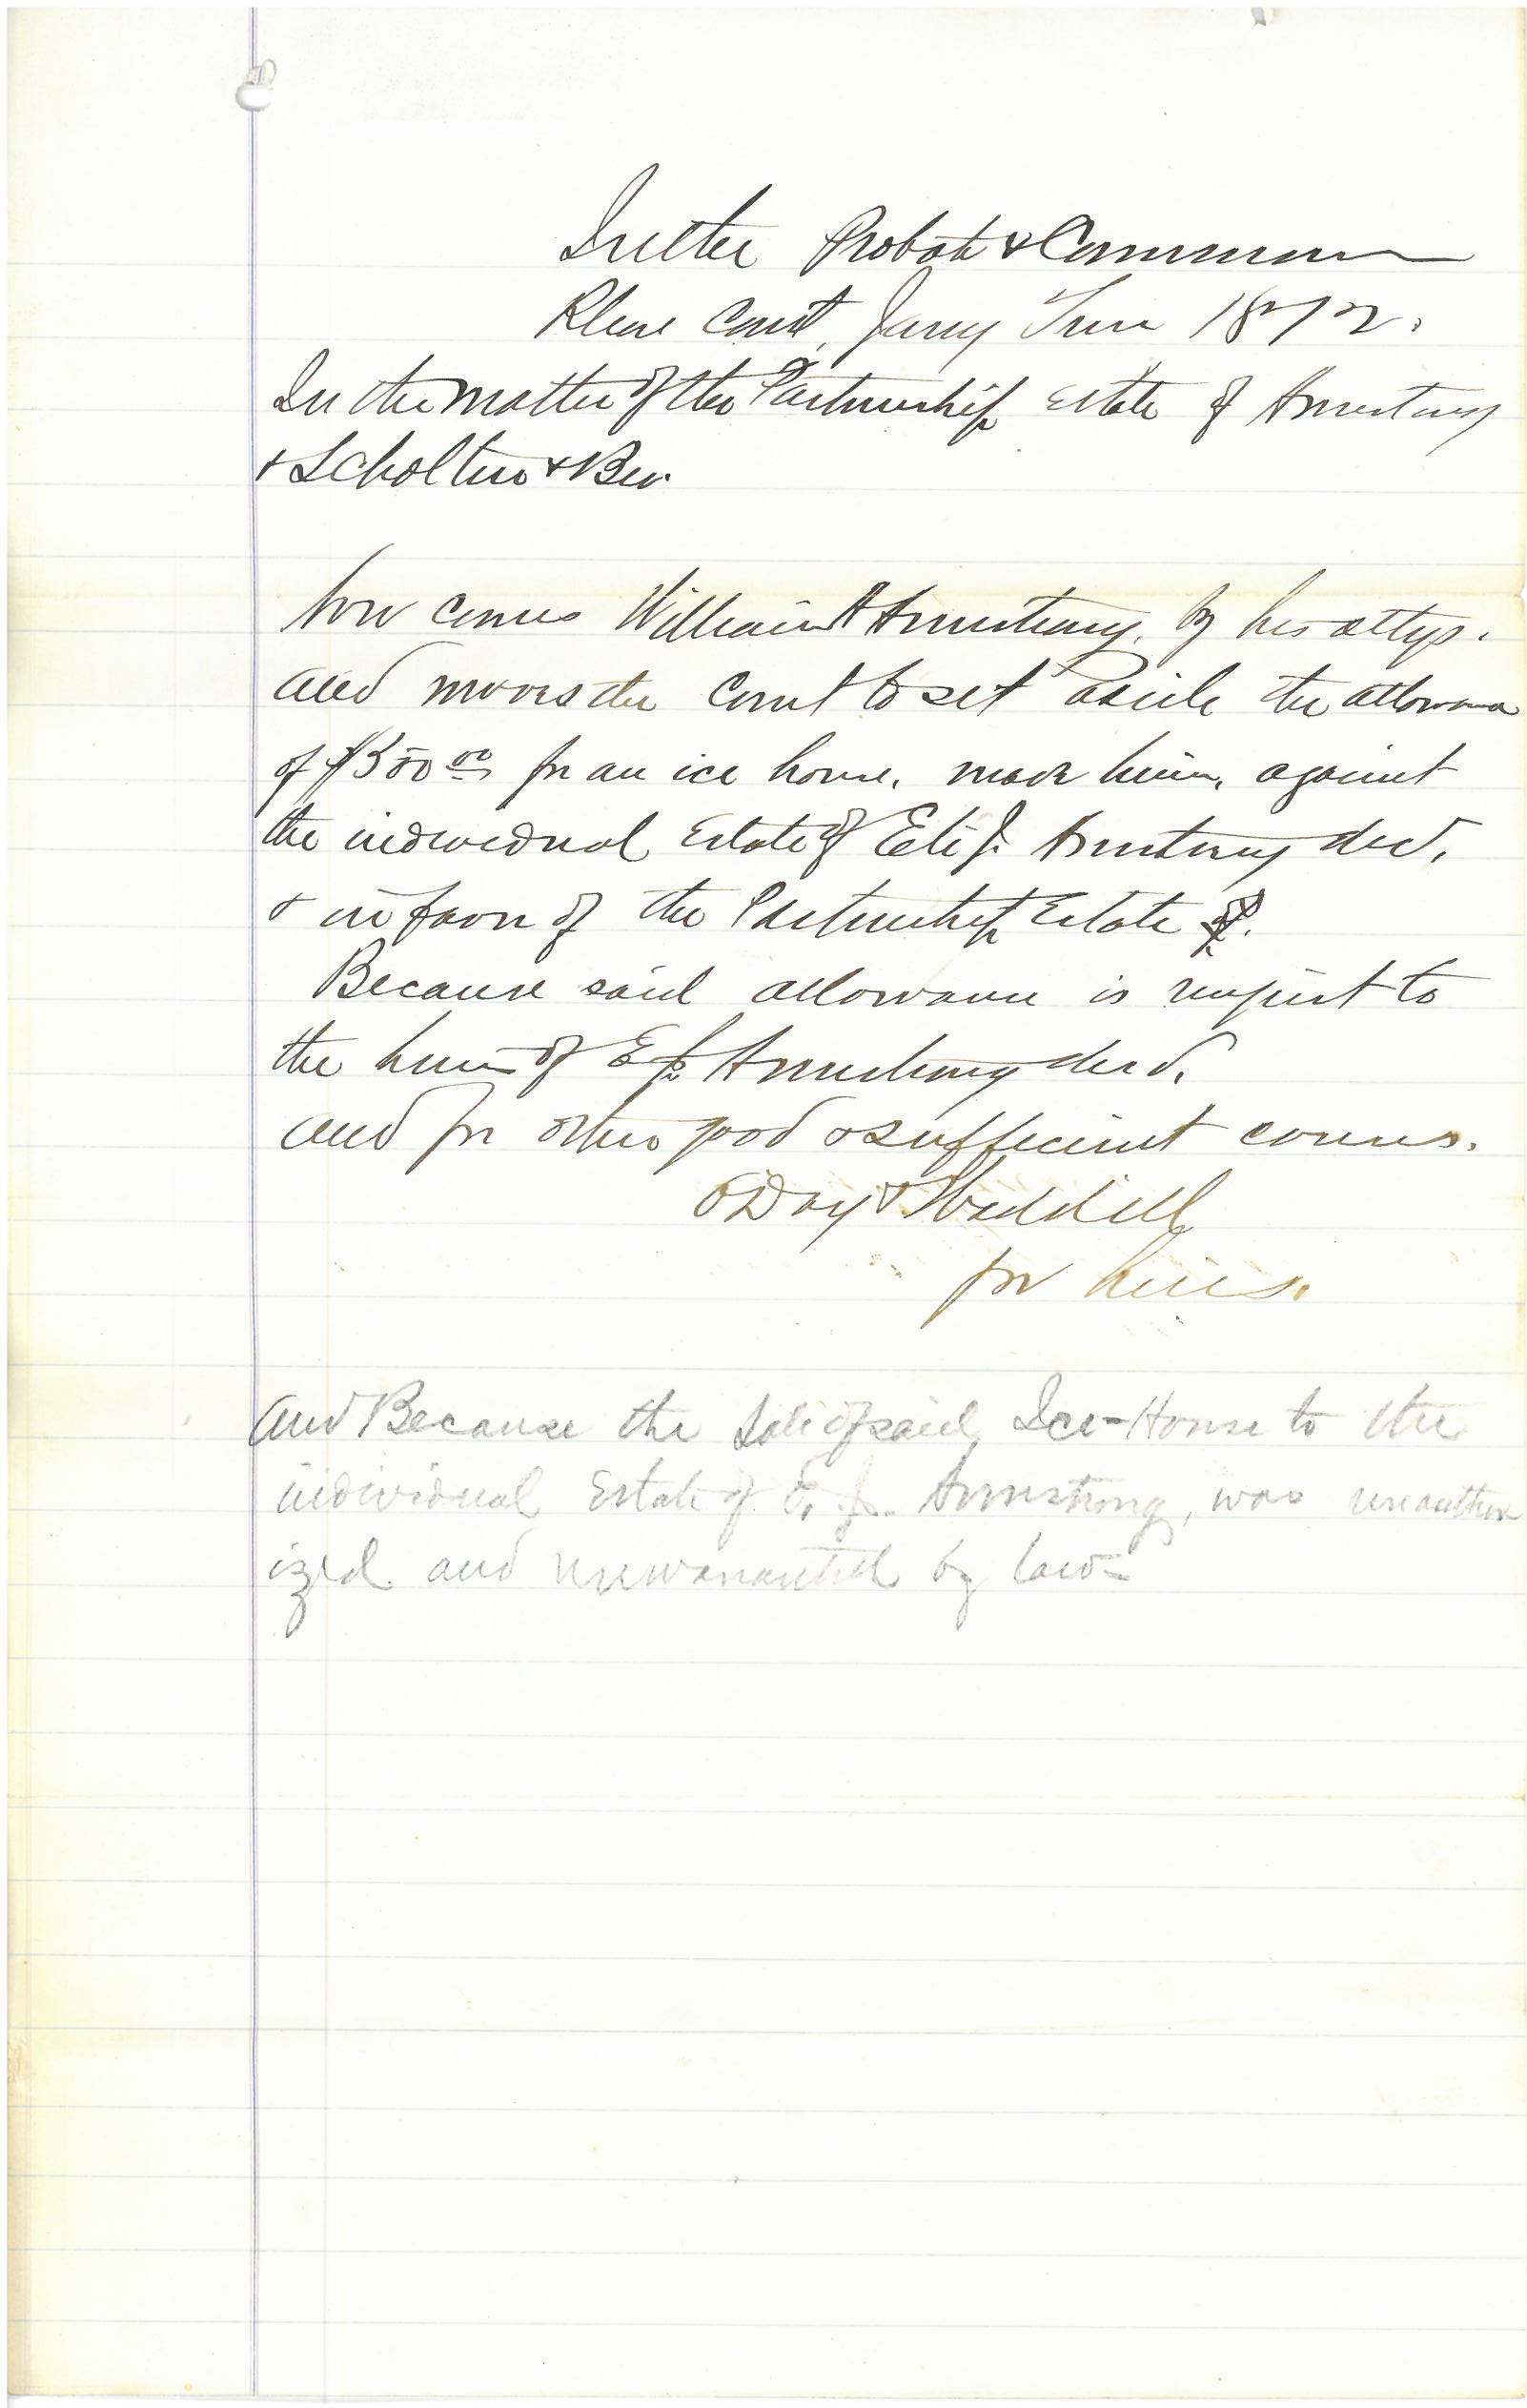 In the Probate & Common
Pleas Court, Jany Term 1872.
In the matter of the Partnership Estate of Armstrong
& Scholten & Bro.
Now comes William A Armstrong, by his attys.
and moves the Court to set aside the allowance
of $300 00 for an ice house, made him, against
the individual Estate of Eli J. Armstrong decd,
& in favor of the Partnership Estate
Because said allowance is unjust to
the heirs of E J. Armstrong decd,
and for other good & sufficient causes.
O'Day & Waddill
for heirs.
And Because the Sale of said Ice-House to the
individual Estate of E. J. Armstrong, was unauthor
ized and unwarranted by law-